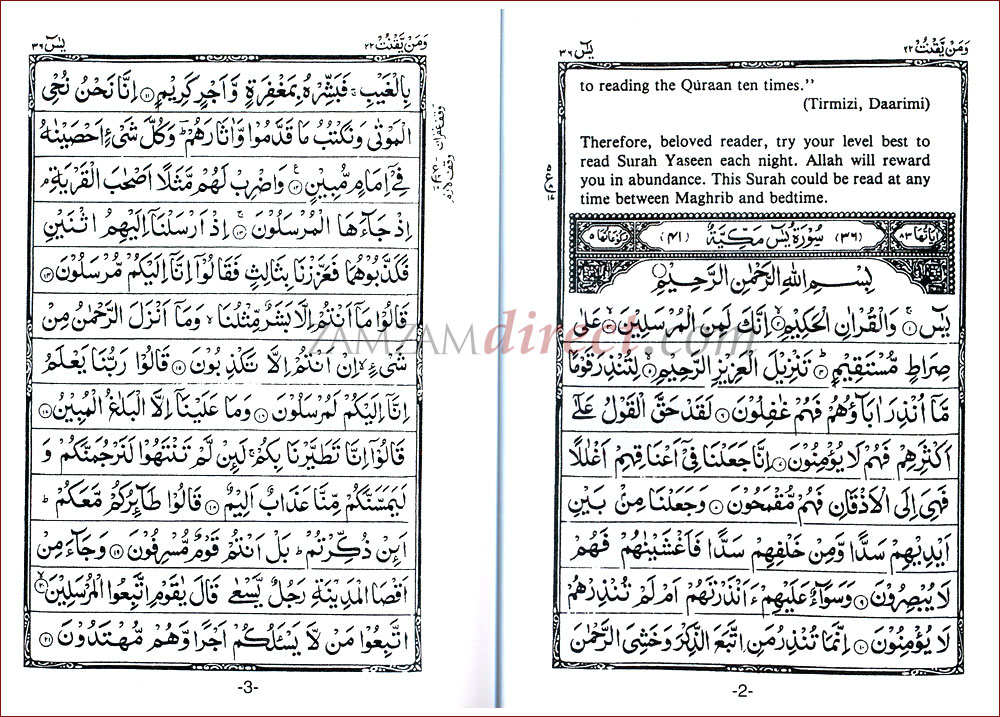 وَمَنْ يَّقْنُتْ ٢٢
يٰسٓ ٣٦
to reading the Qúraan ten times.”
(Tirmizi, Daarimi)
Therefore, beloved reader, try your level best to
read Surah Yaseen each night. Allah will reward
you in abundance. This Surah could be read at any
time between Maghrib and bedtime.
اٰيَاتُهَا ٨٣ (٣٦) سُوْرَةُ يٰسٓ مَكِّيَّةٌ (٤١) رُكُوْعَاتُهَا ٥
بِسْمِ اللّٰهِ الرَّحْمٰنِ الرَّحِيْمِ
يٰسٓ ۚ ١ وَالْقُرْاٰنِ الْحَكِيْمِ ۙ ٢ اِنَّكَ لَمِنَ الْمُرْسَلِيْنَ ۙ ٣ عَلٰى
صِرَاطٍ مُّسْتَقِيْمٍ ؕ ٤ تَنْزِيْلَ الْعَزِيْزِ الرَّحِيْمِ ۙ ٥ لِتُنْذِرَ قَوْمًا
مَّاۤ اُنْذِرَ اٰبَآؤُهُمْ فَهُمْ غٰفِلُوْنَ ٦ لَقَدْ حَقَّ الْقَوْلُ عَلٰۤى
اَكْثَرِهِمْ فَهُمْ لَا يُؤْمِنُوْنَ ٧ اِنَّا جَعَلْنَا فِيْۤ اَعْنَاقِهِمْ اَغْلٰلًا
فَهِيَ اِلَى الْاَذْقَانِ فَهُمْ مُّقْمَحُوْنَ ٨ وَجَعَلْنَا مِنْۢ بَيْنِ
اَيْدِيْهِمْ سَدًّا وَّمِنْ خَلْفِهِمْ سَدًّا فَاَغْشَيْنٰهُمْ فَهُمْ
لَا يُبْصِرُوْنَ ٩ وَسَوَآءٌ عَلَيْهِمْ ءَاَنْذَرْتَهُمْ اَمْ لَمْ تُنْذِرْهُمْ
لَا يُؤْمِنُوْنَ ١٠ اِنَّمَا تُنْذِرُ مَنِ اتَّبَعَ الذِّكْرَ وَخَشِيَ الرَّحْمٰنَ
-2-
وَمَنْ يَّقْنُتْ ٢٢
يٰسٓ ٣٦
بِالْغَيْبِ ۚ فَبَشِّرْهُ بِمَغْفِرَةٍ وَّاَجْرٍ كَرِيْمٍ ١١ اِنَّا نَحْنُ نُحْيِ
الْمَوْتٰى وَنَكْتُبُ مَا قَدَّمُوْا وَاٰثَارَهُمْ ؕ وَكُلَّ شَيْءٍ اَحْصَيْنٰهُ
فِيْۤ اِمَامٍ مُّبِيْنٍ ١٢ وَاضْرِبْ لَهُمْ مَّثَلًا اَصْحٰبَ الْقَرْيَةِ ۘ
اِذْ جَآءَهَا الْمُرْسَلُوْنَ ۚ ١٣ اِذْ اَرْسَلْنَاۤ اِلَيْهِمُ اثْنَيْنِ
فَكَذَّبُوْهُمَا فَعَزَّزْنَا بِثَالِثٍ فَقَالُوْۤا اِنَّاۤ اِلَيْكُمْ مُّرْسَلُوْنَ ١٤
قَالُوْا مَاۤ اَنْتُمْ اِلَّا بَشَرٌ مِّثْلُنَا ۙ وَمَاۤ اَنْزَلَ الرَّحْمٰنُ مِنْ
شَيْءٍ ۙ اِنْ اَنْتُمْ اِلَّا تَكْذِبُوْنَ ١٥ قَالُوْا رَبُّنَا يَعْلَمُ
اِنَّاۤ اِلَيْكُمْ لَمُرْسَلُوْنَ ١٦ وَمَا عَلَيْنَاۤ اِلَّا الْبَلٰغُ الْمُبِيْنُ ١٧
قَالُوْۤا اِنَّا تَطَيَّرْنَا بِكُمْ ۚ لَئِنْ لَّمْ تَنْتَهُوْا لَنَرْجُمَنَّكُمْ وَ
لَيَمَسَّنَّكُمْ مِّنَّا عَذَابٌ اَلِيْمٌ ١٨ قَالُوْا طَآئِرُكُمْ مَّعَكُمْ ؕ
اَئِنْ ذُكِّرْتُمْ ؕ بَلْ اَنْتُمْ قَوْمٌ مُّسْرِفُوْنَ ١٩ وَجَآءَ مِنْ
اَقْصَا الْمَدِيْنَةِ رَجُلٌ يَّسْعٰى قَالَ يٰقَوْمِ اتَّبِعُوا الْمُرْسَلِيْنَ ۙ ٢٠
اتَّبِعُوْا مَنْ لَّا يَسْـَٔلُكُمْ اَجْرًا وَّهُمْ مُّهْتَدُوْنَ ٢١
وقف غفران
وقف لازم
-3-
ZAMZAMdirect.com